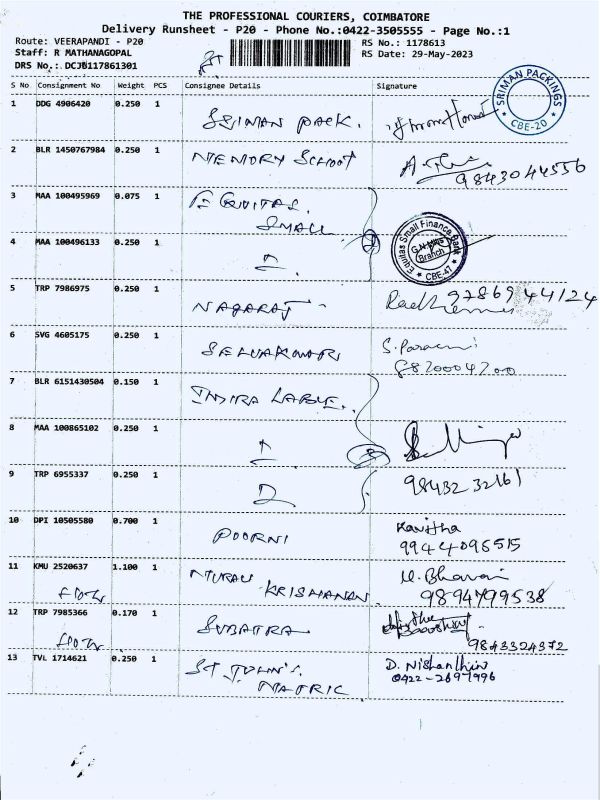 THE PROFESSIONAL COURIERS, COIMBATORE
Delivery Runsheet - P20 - Phone No.:0422-3505555 - Page No.:1
Route: VEERAPANDI - P20
RS No.: 1178613
Staff: R MATHANAGOPAL
RS Date: 29-May-2023
DRS No.: DCJB117861301
S No Consignment No Weight PCS Consignee Details Signature
SRIMAN PACKINGS
CBE-20
1 DDG 4906420 0.250 1 SRIMAN PACK.
2 BLR 1450767984 0.250 1 MEMORY SCHOOL
9843044556
3 MAA 100495969 0.075 1 EQUITAS.
SMALL
Equitas Small Finance Bank
G.N Mills
Branch
CBE-47
4 MAA 100496133 0.250 1
5 TRP 7986975 0.250 1 NAGARAJ 9786944124
6 SVG 4605175 0.250 1 SELVAKUMARI
8820004200
7 BLR 6151430504 0.150 1 INDIRA LABLE.
8 MAA 100865102 0.250 1
9 TRP 6955337 0.250 1
98432 32161
10 DPI 10505580 0.700 1 POORNI Kavitha
9944096515
11 KMU 2520637 1.100 1 MURALI KRISHANAN
9894799538
12 TRP 7985366 0.170 1 SUBATRA
9843324372
13 TVL 1714621 0.250 1 ST JOHN'S. MATRIC
D. Nishanthini
0422-2697996